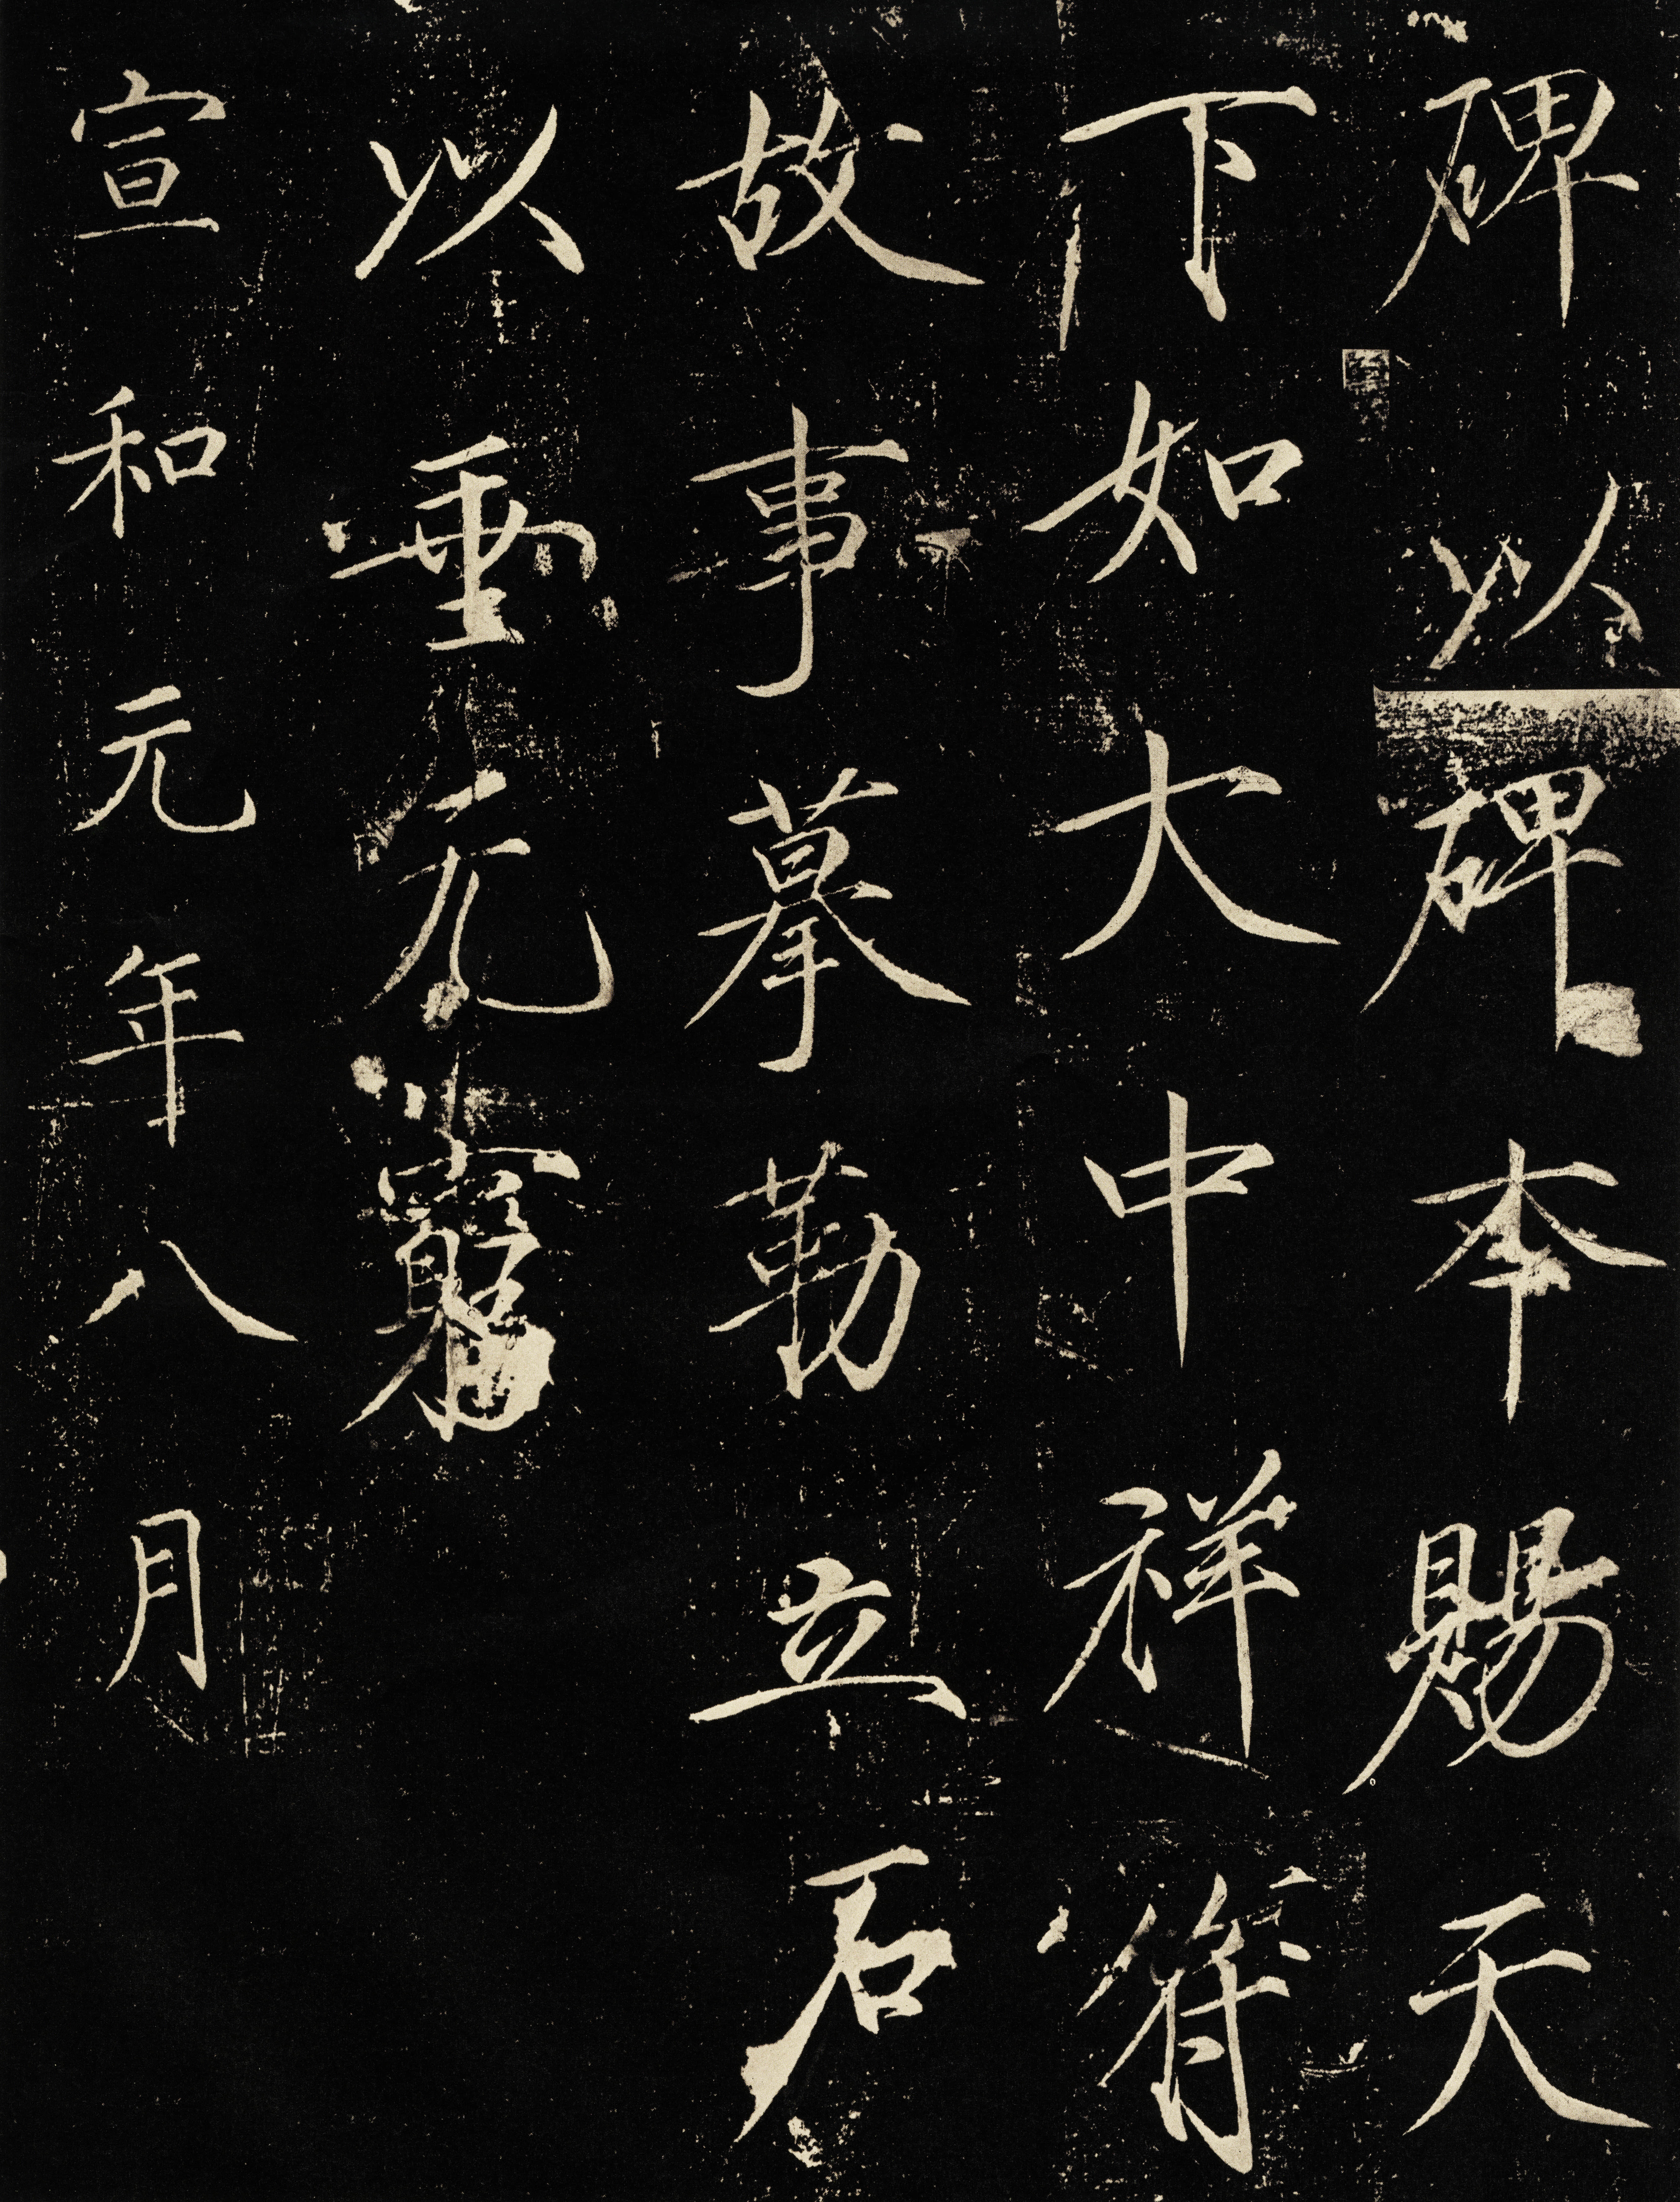 碑以碑本賜天
下如大中祥符
故事摹勒立石
以垂无窮
宣和元年八月